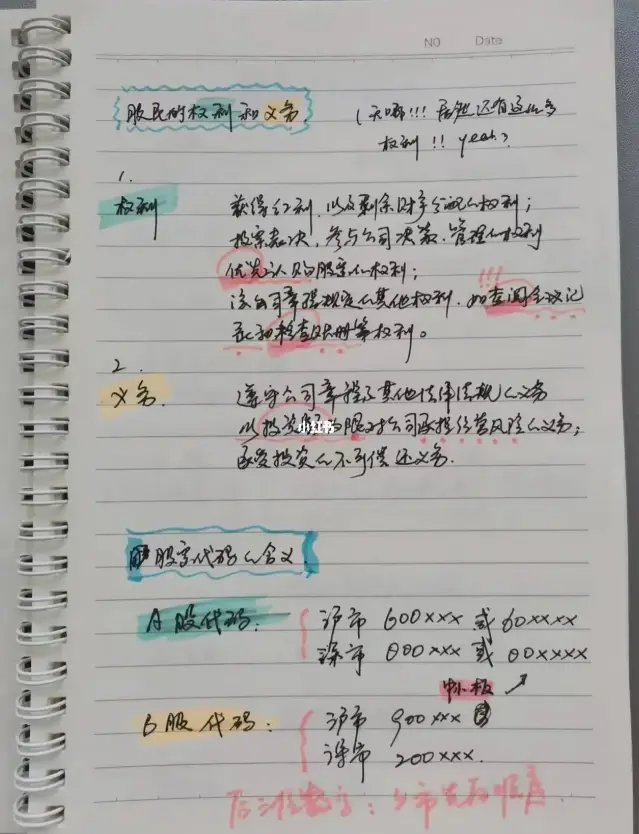 NO Date
股民的权利和义务 (天哪!!! 居然还有这么多
权利!! yeah?
1.
权利 获得红利,以及剩余财产分配的权利;
投票表决,参与公司决策、管理的权利
优先认购股票的权利;
该公司章程规定的其他权利,如查阅会议记
录和检查账册等权利。
!!!
2.
义务 遵守公司章程及其他法律法规的义务
以投资额为限对公司承担经营风险的义务;
承受投资的不可偿还义务.
小红书
股票代码的含义
A股代码: 沪市 600xxx 或 60xxxx
深市 000xxx 或 00xxxx
中小板
B股代码: 沪市 900xxx
深市 200xxx.
后三位数字:上市先后顺序.